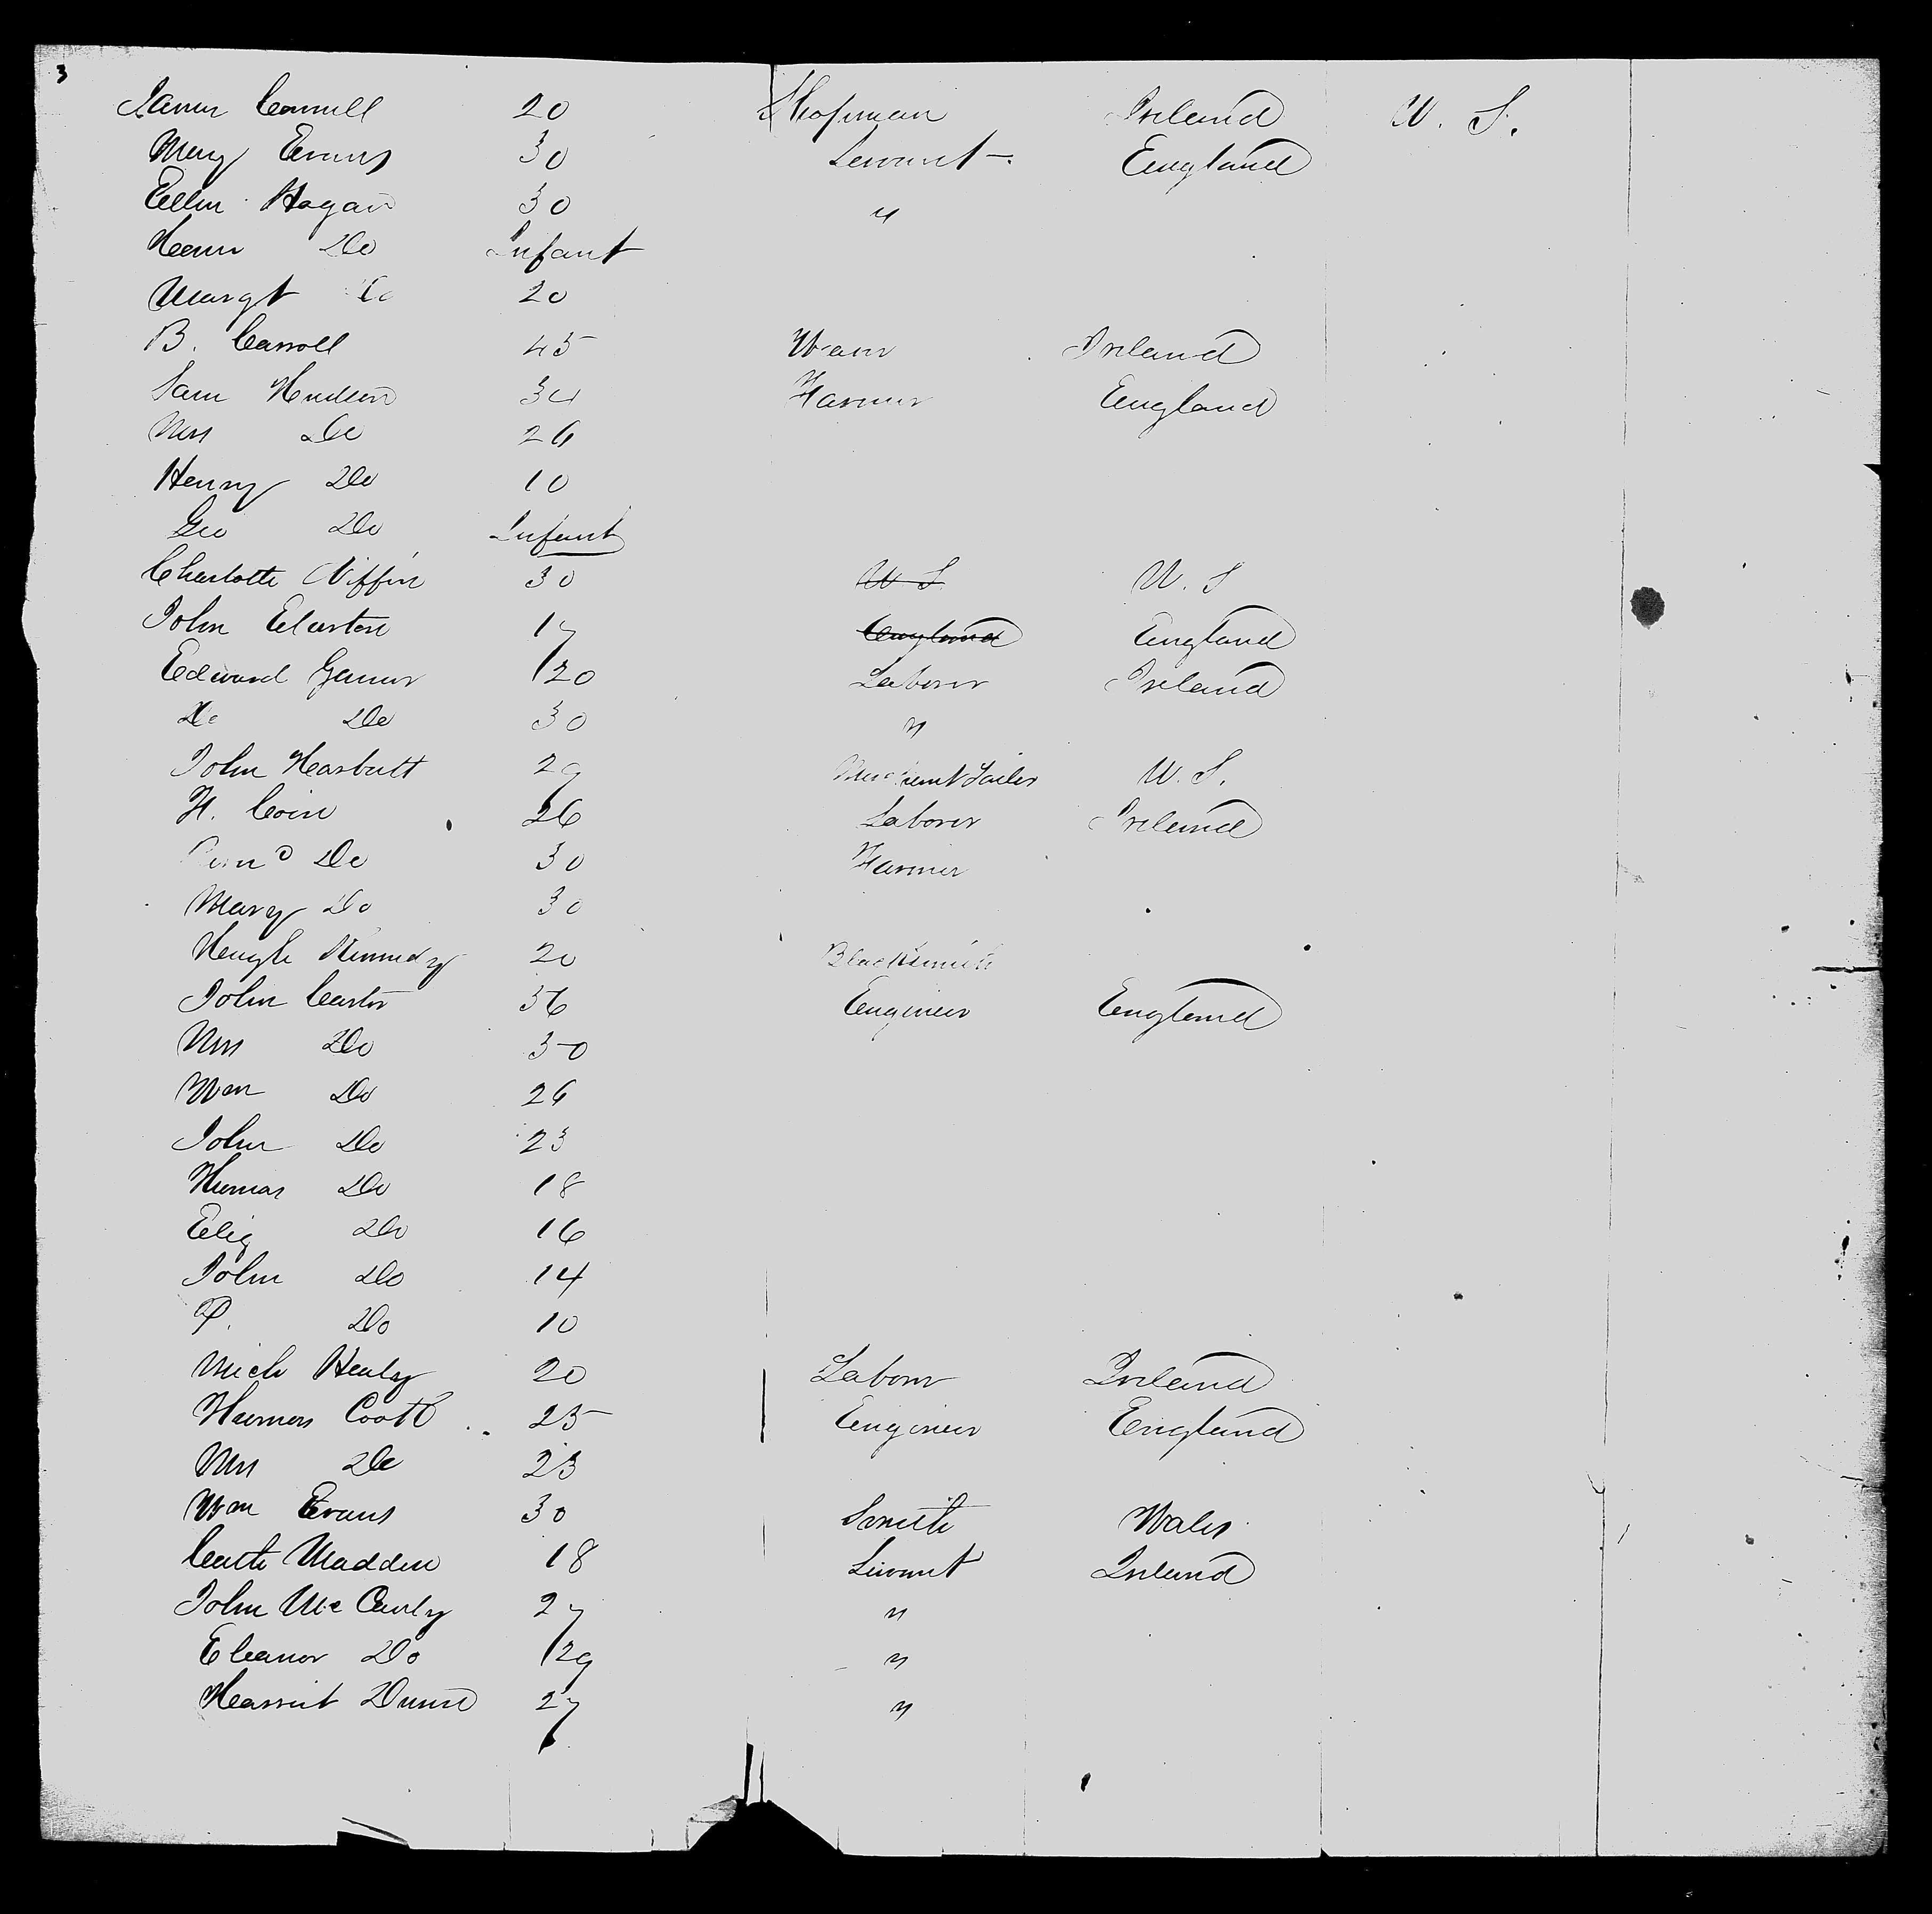 3
James Connell 20 Shopman Ireland U. S.
Mary Evans 30 Servant England
Ellen Hagan 30 "
Do Infant
Margt Do 20
B. Carroll 45 Ireland
Sam Hudson 34 Farmer England
Mrs Do 26
Henry Do 10
Geo Do Infant
Charlotte 30 U S U. S
John 17 England England
Edward 20 Laborer Ireland
Do Do 30 "
John Harbutt 29 Merchant Tailor U. S.
H. Coin 26 Laborer Ireland
Do 30 Farmer
Mary Do 30
Hugh Kennedy 20 Blacksmith
John Carter 36 Engineer England
Mrs Do 30
Wm Do 26
John Do 23
Thomas Do 18
Eliz Do 16
John Do 14
P. Do 10
Mich Healy 20 Labour Ireland
Thomas 25 Engineer England
Mrs Do 23
Wm Evans 30 Smith Wales
Cath Madden 18 Servant Ireland
John McCauly 27 "
Eleanor Do 29 "
Harriet Dunn 27 "